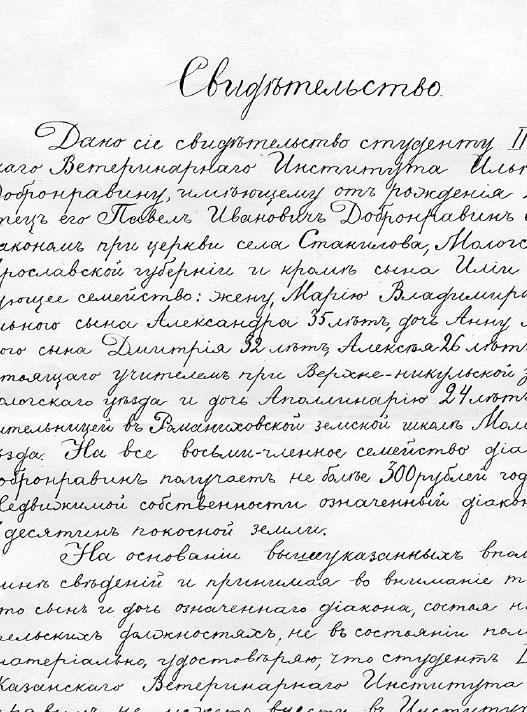 Свидѣтельство.
Дано сіе свидѣтельство студенту
скаго Ветеринарнаго Института Ильѣ
Добронравину, имѣющему отъ рожденія
тецъ его Павелъ Ивановичъ Добронравинъ
іакономъ при церкви села Станилова, Молог
Ярославской губерніи и кромѣ сына Иліи
ующее семейство: жену, Марію Владимиро
льного сына Александра 35 лѣтъ, дочь Анну
ого сына Дмитрія 32 лѣтъ, Алексѣя 26 лѣтъ
тоящаго учителемъ при Верхне-никульской з
ологскаго уѣзда и дочь Аполлинарію 24 лѣтъ
ительницей въ Рамániховской земской школѣ Моло
ѣзда. На все восьми-членное семейство діа
обронравинъ получаетъ не болѣе 300 рублей год
Недвижимой собственности означенный діакон
десятинъ покосной земли.
На основаніи вышеуказанныхъ впол
ныхъ свѣденій и принимая во вниманіе т
то сынъ и дочь означеннаго діакона, состоя н
ельскихъ должностяхъ, не въ состояніи пом
матеріально, удостовѣряю, что студентъ
Казанскаго Ветеринарнаго Института
не можетъ внести въ Институ